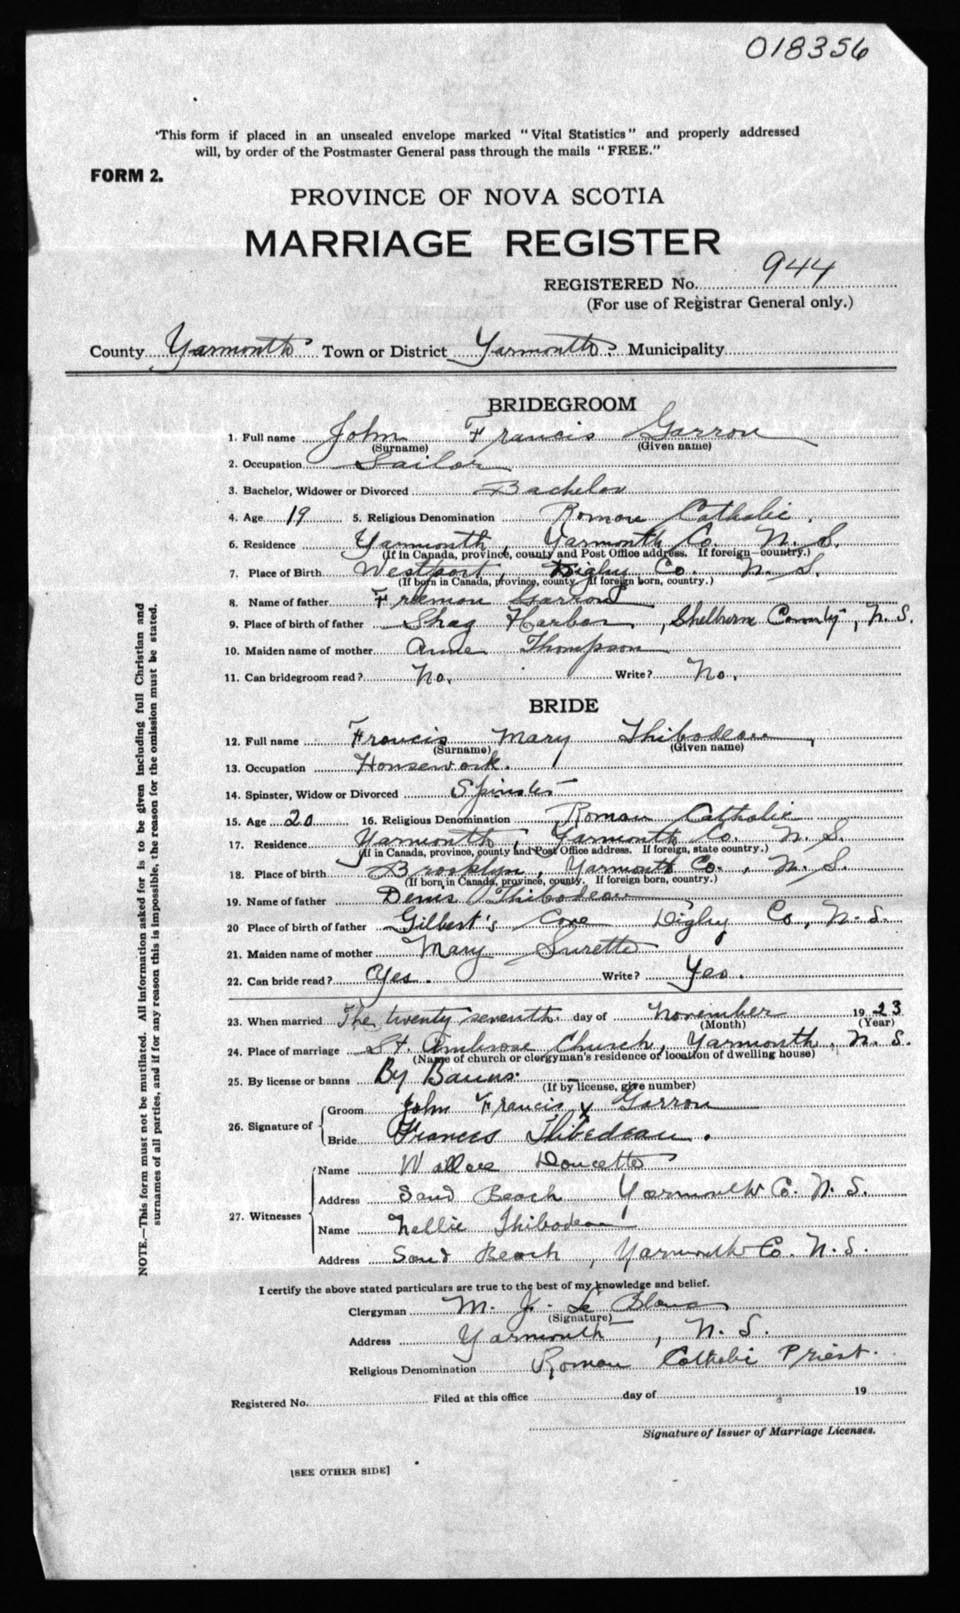 018356
"This form if placed in an unsealed envelope marked "Vital Statistics" and properly addressed
will, by order of the Postmaster General pass through the mails "FREE."
FORM 2.
PROVINCE OF NOVA SCOTIA
MARRIAGE REGISTER
REGISTERED No. 944
(For use of Registrar General only.)
County Yarmouth Town or District Yarmouth Municipality
BRIDEGROOM
1. Full name John Francis Garron
(Surname) (Given name)
2. Occupation Sailor
3. Bachelor, Widower or Divorced Bachelor
4. Age 19 5. Religious Denomination Roman Catholic.
6. Residence Yarmouth, Yarmouth Co. N. S.
(If in Canada, province, county and Post Office address. If foreign—country.)
7. Place of Birth Westport, Digby Co. N. S.
(If born in Canada, province, county. If foreign born, country.)
8. Name of father Fremon Garron
9. Place of birth of father Shag Harbor, Shelburne County, N. S.
10. Maiden name of mother Annie Thompson
11. Can bridegroom read? No. Write? No.
BRIDE
12. Full name Francis Mary Thibodeau,
(Surname) (Given name)
13. Occupation Housework.
14. Spinster, Widow or Divorced Spinster
15. Age 20 16. Religious Denomination Roman Catholic
17. Residence Yarmouth, Yarmouth Co. N. S.
(If in Canada, province, county and Post Office address. If foreign, state country.)
18. Place of birth Brooklyn, Yarmouth Co., N. S.
(If born in Canada, province, county. If foreign born, country.)
19. Name of father Denis Thibodeau
20 Place of birth of father Gilbert's Cove Digby Co, N. S.
21. Maiden name of mother Mary Surette
22. Can bride read? Yes. Write? Yes.
23. When married The twenty seventh day of November 1923
(Month) (Year)
24. Place of marriage St. Ambrose Church, Yarmouth, N. S.
(Name of church or clergyman's residence or location of dwelling house)
25. By license or banns By Banns.
(If by license, give number)
26. Signature of Groom John Francis x Garron
Bride Frances Thibedeau.
27. Witnesses Name Wallace Doucette
Address Sand Beach Yarmouth Co. N. S.
Name Nellie Thibodeau
Address Sand Beach, Yarmouth Co. N. S.
I certify the above stated particulars are true to the best of my knowledge and belief.
Clergyman M. J. Le Blanc
(Signature)
Address Yarmouth, N. S.
Religious Denomination Roman Catholic Priest.
Registered No. Filed at this office day of 19
Signature of Issuer of Marriage Licenses.
[SEE OTHER SIDE]
NOTE.—This form must not be mutilated. All information asked for is to be given including full Christian and
surnames of all parties, and if for any reason this is impossible, the reason for the omission must be stated.